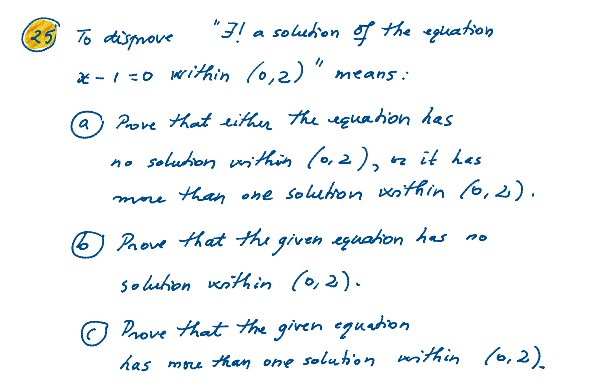 25 To disprove "∃! a solution of the equation
x - 1 = 0 within (0,2)" means:
a Prove that either the equation has
no solution within (0,2), or it has
more than one solution within (0,2).
b Prove that the given equation has no
solution within (0,2).
c Prove that the given equation
has more than one solution within (0,2).